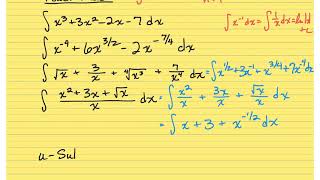 ∫ x³+3x²-2x-7 dx
∫x⁻¹dx = ∫1/x dx = ln|x|+c
∫ x⁻⁴ + 6x^(3/2) - 2x^(-7/4) dx
∫ √x + 3/x + ∜x³ + 7/x⁴ dx = ∫x^(1/2)+3x⁻¹+x^(3/4)+7x⁻⁴dx
∫ (x²+3x+√x)/x dx = ∫ x²/x + 3x/x + √x/x dx
= ∫ x + 3 + x^(-1/2) dx
u-Sub